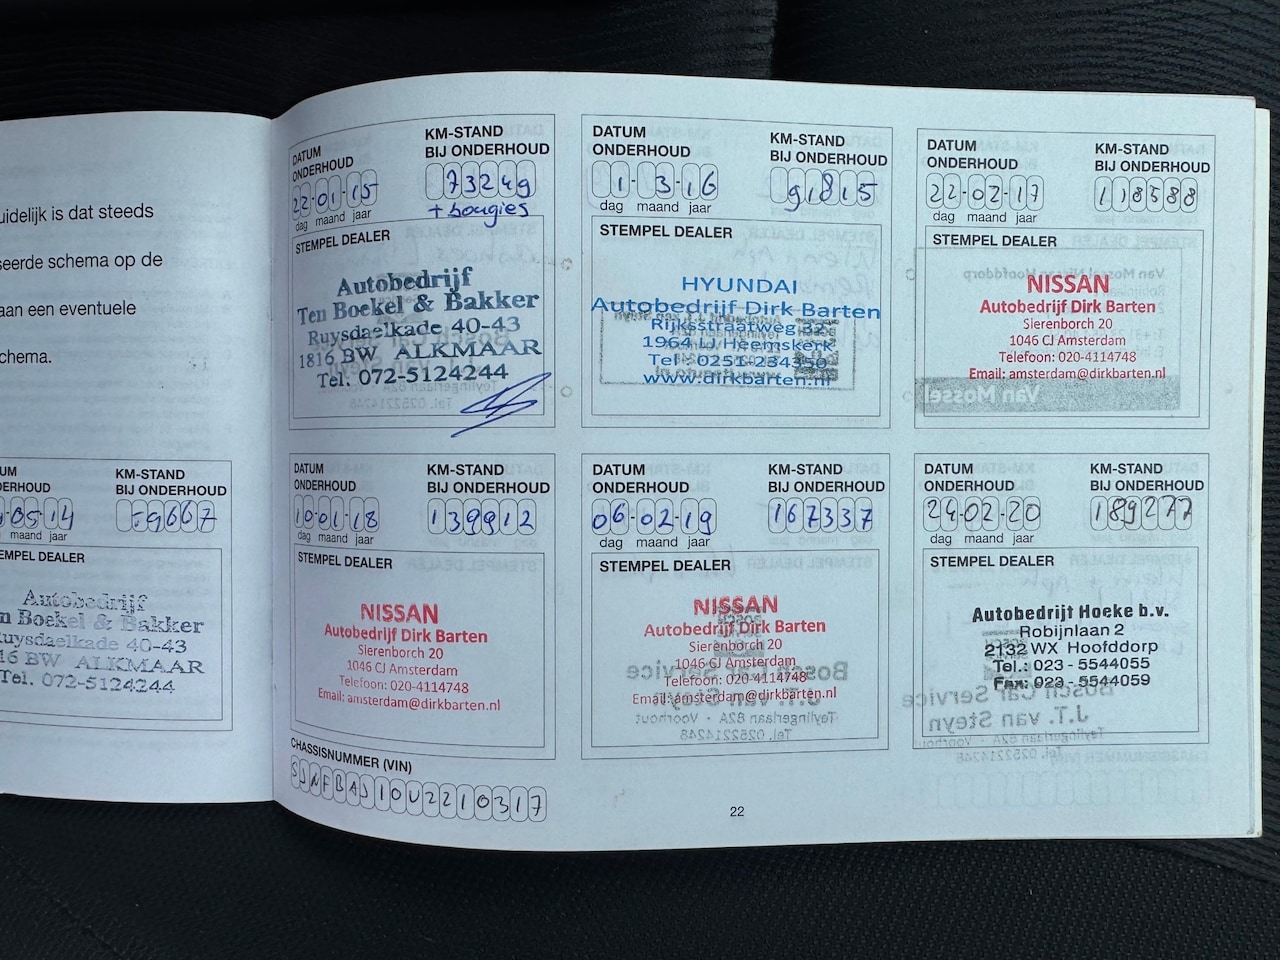 uidelijk is dat steeds
seerde schema op de
aan een eventuele
chema.
UM
DERHOUD
KM-STAND
BIJ ONDERHOUD
05-14
9667
dag maand jaar
EMPEL DEALER
Autobedrijf
n Boekel & Bakker
Ruysdaelkade 40-43
16 BW ALKMAAR
Tel. 072-5124244
DATUM
ONDERHOUD
KM-STAND
BIJ ONDERHOUD
22-01-15
73249
dag maand jaar
+ bougies
STEMPEL DEALER
Autobedrijf
Ten Boekel & Bakker
Ruysdaelkade 40-43
1816 BW ALKMAAR
Tel. 072-5124244
DATUM
ONDERHOUD
KM-STAND
BIJ ONDERHOUD
1-3-16
91815
dag maand jaar
STEMPEL DEALER
HYUNDAI
Autobedrijf Dirk Barten
Rijksstraatweg 32
1964 LJ Heemskerk
Tel: 0251-234350
www.dirkbarten.nl
DATUM
ONDERHOUD
KM-STAND
BIJ ONDERHOUD
22-02-17
118588
dag maand jaar
STEMPEL DEALER
NISSAN
Autobedrijf Dirk Barten
Sierenborch 20
1046 CJ Amsterdam
Telefoon: 020-4114748
Email: amsterdam@dirkbarten.nl
DATUM
ONDERHOUD
KM-STAND
BIJ ONDERHOUD
10-01-18
139912
dag maand jaar
STEMPEL DEALER
NISSAN
Autobedrijf Dirk Barten
Sierenborch 20
1046 CJ Amsterdam
Telefoon: 020-4114748
Email: amsterdam@dirkbarten.nl
DATUM
ONDERHOUD
KM-STAND
BIJ ONDERHOUD
06-02-19
167337
dag maand jaar
STEMPEL DEALER
NISSAN
Autobedrijf Dirk Barten
Sierenborch 20
1046 CJ Amsterdam
Telefoon: 020-4114748
Email: amsterdam@dirkbarten.nl
DATUM
ONDERHOUD
KM-STAND
BIJ ONDERHOUD
24-02-20
189277
dag maand jaar
STEMPEL DEALER
Autobedrijt Hoeke b.v.
Robijnlaan 2
2132 WX Hoofddorp
Tel.: 023 - 5544055
Fax: 023 - 5544059
CHASSISNUMMER (VIN)
SJNFBAJ10U2210317
22